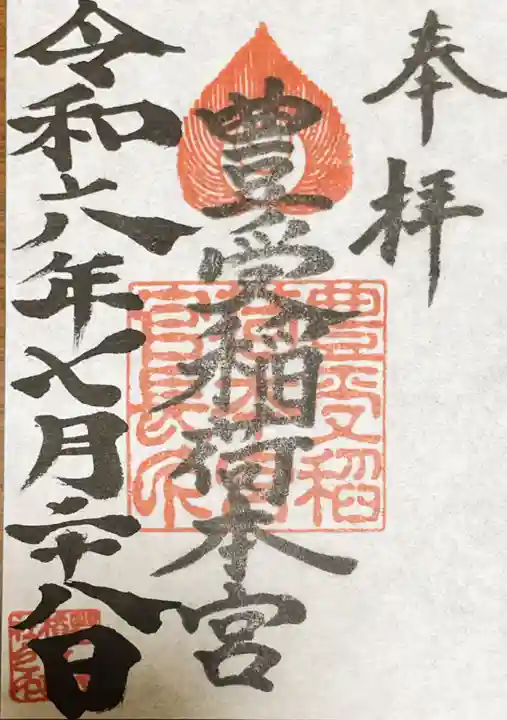 奉拝
豊受稲荷本宮
令和六年七月二十八日